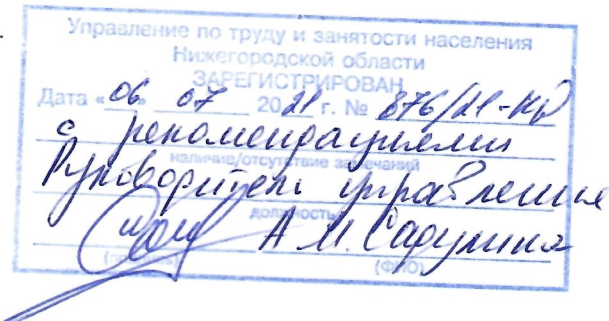 Управление по труду и занятости населения
Нижегородской области
ЗАРЕГИСТРИРОВАН
Дата «06» 07 2021 г. № 876/21-КД
с рекомендациями
наличие/отсутствие замечаний
Руководитель управления
должность
А.М.
(ФИО)